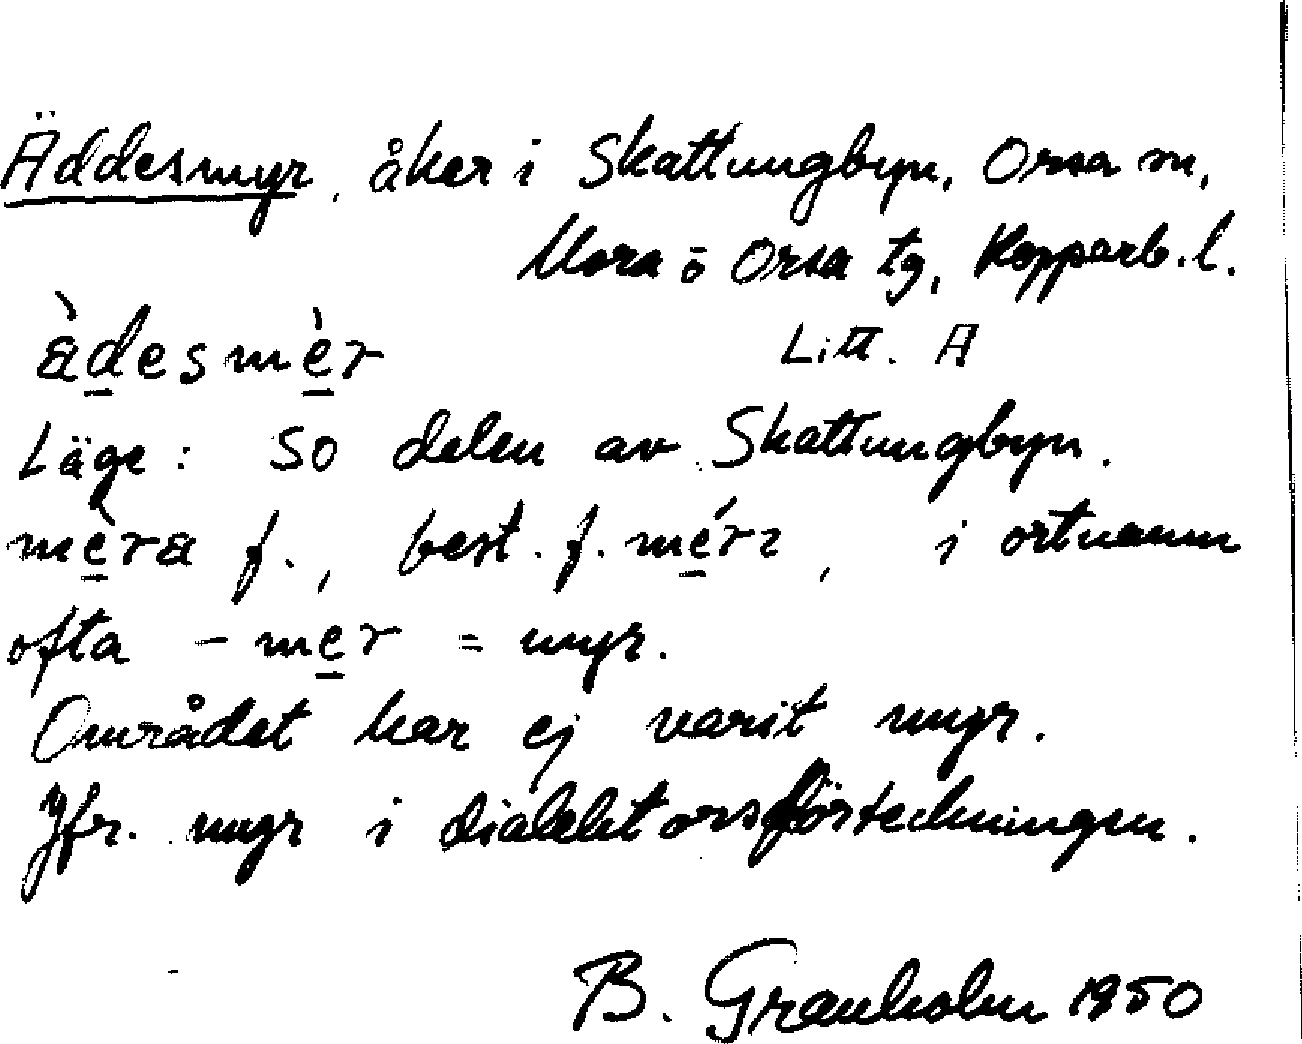 Äddesmyr, åker i Skattungbyn, Orsa sn,
Mora o Orsa tg, Kopparb. l.
àdesmèr Litt. A
Läge: SO delen av Skattungbyn.
mèra f., best. f. mérɩ, i ortnamn
ofta -mer = myr.
Området har ej varit myr.
Jfr. myr i dialektordsförteckningen.
B. Granholm 1950